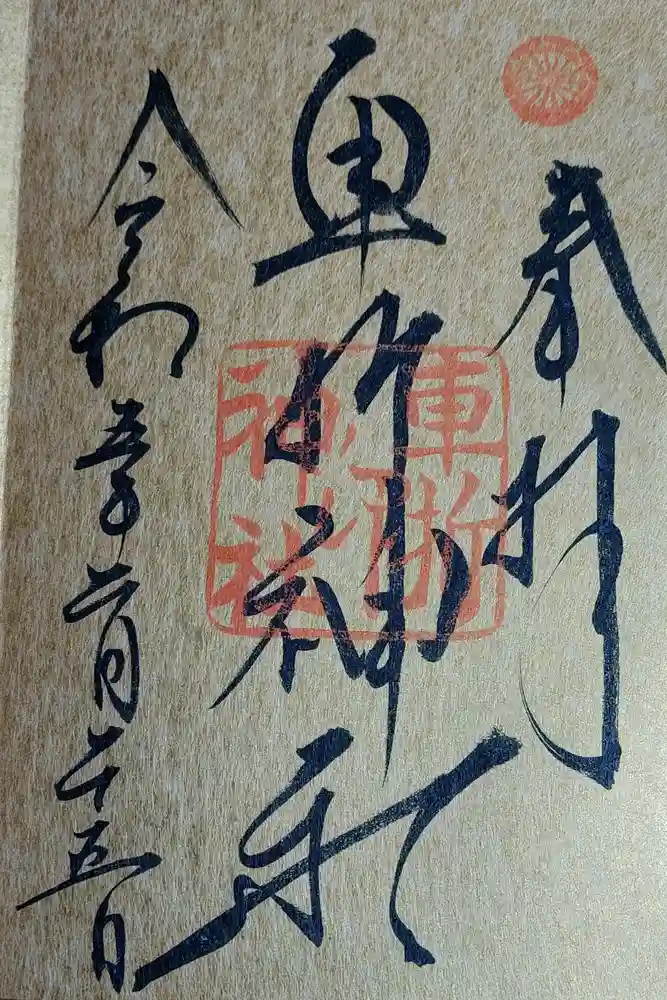 奉拝
車折神社
令和五年二月二十五日
車折
神社